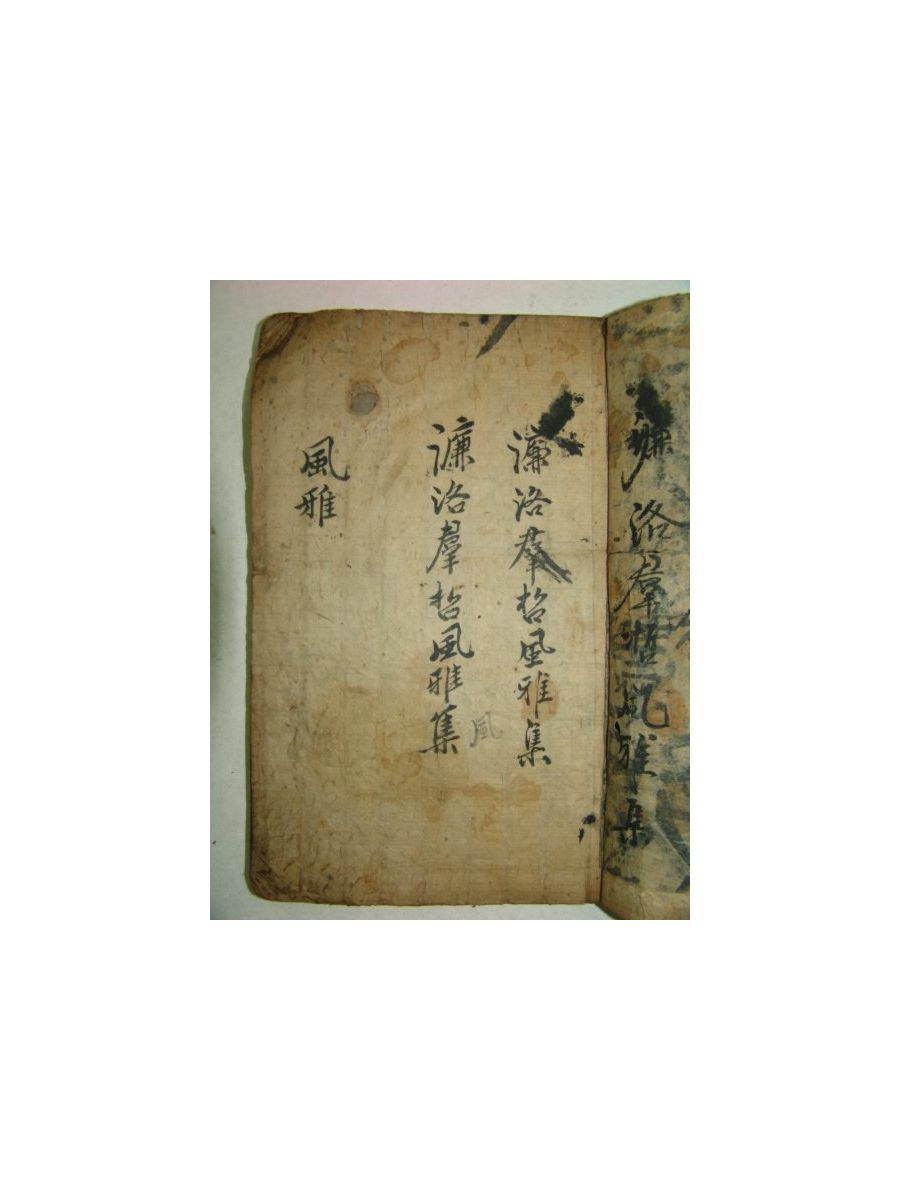 濂洛羣哲風雅集
濂洛羣哲風雅集
風
濂洛羣哲風雅集
風雅